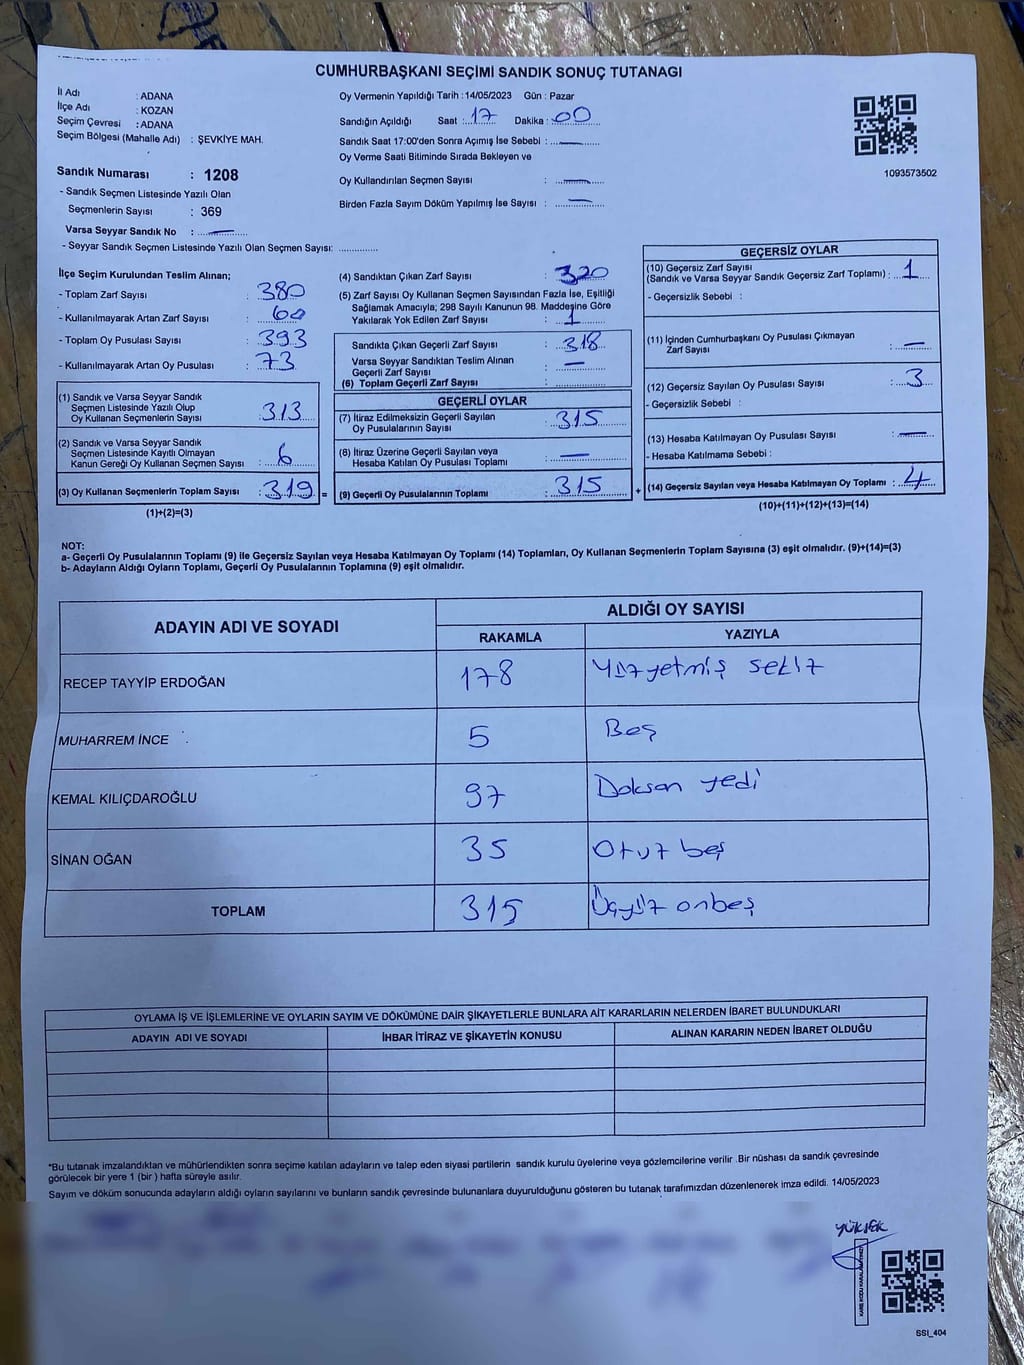 CUMHURBAŞKANI SEÇİMİ SANDIK SONUÇ TUTANAGI
İl Adı : ADANA
İlçe Adı : KOZAN
Seçim Çevresi : ADANA
Seçim Bölgesi (Mahalle Adı) : ŞEVKİYE MAH.
Sandık Numarası : 1208
- Sandık Seçmen Listesinde Yazılı Olan
Seçmenlerin Sayısı : 369
Varsa Seyyar Sandık No : —
- Seyyar Sandık Seçmen Listesinde Yazılı Olan Seçmen Sayısı: ..............
Oy Vermenin Yapıldığı Tarih : 14/05/2023 Gün : Pazar
Sandığın Açıldığı Saat : 17 Dakika : 00
Sandık Saat 17:00'den Sonra Açımış İse Sebebi : —
Oy Verme Saati Bitiminde Sırada Bekleyen ve
Oy Kullandırılan Seçmen Sayısı : —
Birden Fazla Sayım Döküm Yapılmış İse Sayısı : —
1093573502
İlçe Seçim Kurulundan Teslim Alınan;
- Toplam Zarf Sayısı : 380
- Kullanılmayarak Artan Zarf Sayısı : 60
- Toplam Oy Pusulası Sayısı : 393
- Kullanılmayarak Artan Oy Pusulası : 73
(1) Sandık ve Varsa Seyyar Sandık
Seçmen Listesinde Yazılı Olup
Oy Kullanan Seçmenlerin Sayısı : 313
(2) Sandık ve Varsa Seyyar Sandık
Seçmen Listesinde Kayıtlı Olmayan
Kanun Gereği Oy Kullanan Seçmen Sayısı : 6
(3) Oy Kullanan Seçmenlerin Toplam Sayısı : 319 =
(1)+(2)=(3)
(4) Sandıktan Çıkan Zarf Sayısı : 320
(5) Zarf Sayısı Oy Kullanan Seçmen Sayısından Fazla İse, Eşitliği
Sağlamak Amacıyla; 298 Sayılı Kanunun 98. Maddesine Göre
Yakılarak Yok Edilen Zarf Sayısı : 1
Sandıkta Çıkan Geçerli Zarf Sayısı : 318
Varsa Seyyar Sandıktan Teslim Alınan
Geçerli Zarf Sayısı : —
(6) Toplam Geçerli Zarf Sayısı : ..............
GEÇERLİ OYLAR
(7) İtiraz Edilmeksizin Geçerli Sayılan
Oy Pusulalarının Sayısı : 315
(8) İtiraz Üzerine Geçerli Sayılan veya
Hesaba Katılan Oy Pusulası Toplamı : —
(9) Geçerli Oy Pusulalarının Toplamı : 315 +
GEÇERSİZ OYLAR
(10) Geçersiz Zarf Sayısı
(Sandık ve Varsa Seyyar Sandık Geçersiz Zarf Toplamı) : 1
- Geçersizlik Sebebi :
(11) İçinden Cumhurbaşkanı Oy Pusulası Çıkmayan
Zarf Sayısı : —
(12) Geçersiz Sayılan Oy Pusulası Sayısı : 3
- Geçersizlik Sebebi :
(13) Hesaba Katılmayan Oy Pusulası Sayısı : —
- Hesaba Katılmama Sebebi :
(14) Geçersiz Sayılan veya Hesaba Katılmayan Oy Toplamı : 4
(10)+(11)+(12)+(13)=(14)
NOT:
a- Geçerli Oy Pusulalarının Toplamı (9) ile Geçersiz Sayılan veya Hesaba Katılmayan Oy Toplamı (14) Toplamları, Oy Kullanan Seçmenlerin Toplam Sayısına (3) eşit olmalıdır. (9)+(14)=(3)
b- Adayların Aldığı Oyların Toplamı, Geçerli Oy Pusulalarının Toplamına (9) eşit olmalıdır.
ADAYIN ADI VE SOYADI ALDIĞI OY SAYISI
RAKAMLA YAZIYLA
RECEP TAYYİP ERDOĞAN 178 Yüzyetmiş sekiz
MUHARREM İNCE 5 Beş
KEMAL KILIÇDAROĞLU 97 Doksan yedi
SİNAN OĞAN 35 Otuz beş
TOPLAM 315 Üçyüz onbeş
OYLAMA İŞ VE İŞLEMLERİNE VE OYLARIN SAYIM VE DÖKÜMÜNE DAİR ŞİKAYETLERLE BUNLARA AİT KARARLARIN NELERDEN İBARET BULUNDUKLARI
ADAYIN ADI VE SOYADI İHBAR İTİRAZ VE ŞİKAYETİN KONUSU ALINAN KARARIN NEDEN İBARET OLDUĞU
*Bu tutanak imzalandıktan ve mühürlendikten sonra seçime katılan adayların ve talep eden siyasi partilerin sandık kurulu üyelerine veya gözlemcilerine verilir .Bir nüshası da sandık çevresinde
görülecek bir yere 1 (bir ) hafta süreyle asılır.
Sayım ve döküm sonucunda adayların aldığı oyların sayılarını ve bunların sandık çevresinde bulunanlara duyurulduğunu gösteren bu tutanak tarafımızdan düzenlenerek imza edildi. 14/05/2023
YÜKSEK
SSI_404